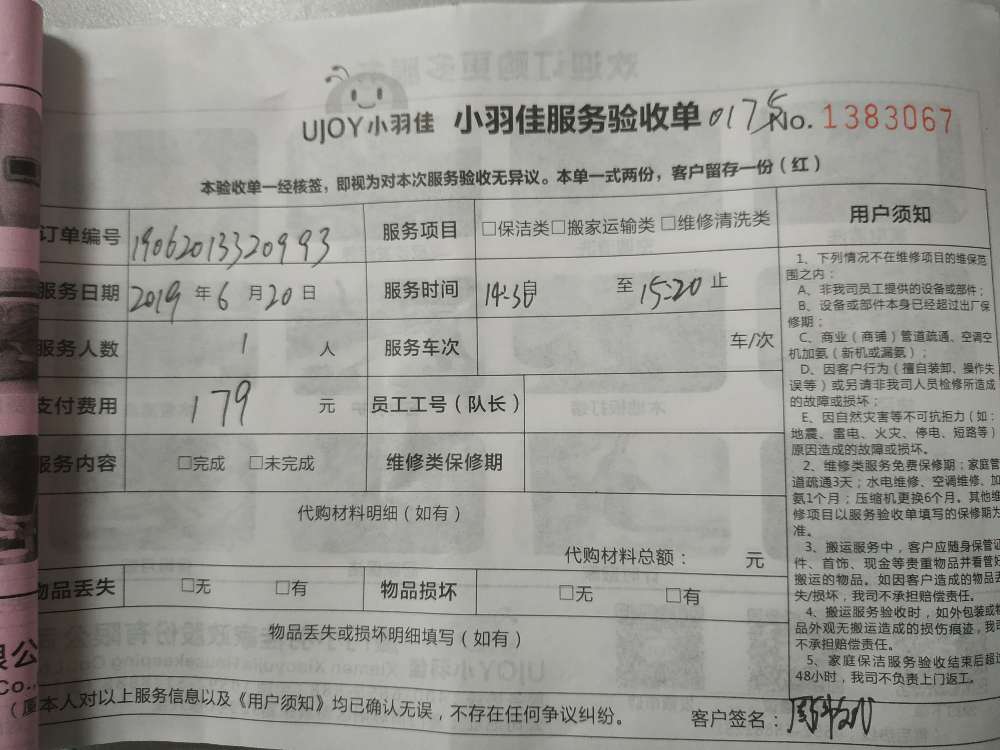 UJOY小羽佳 小羽佳服务验收单 0175 No. 1383067
本验收单一经核签，即视为对本次服务验收无异议。本单一式两份，客户留存一份（红）
订单编号 19062013320993 服务项目 □保洁类□搬家运输类 □维修清洗类
服务日期 2019 年 6 月 20 日 服务时间 14:30 至 15:20 止
服务人数 1 人 服务车次 车/次
支付费用 179 元 员工工号（队长）
服务内容 □完成 □未完成 维修类保修期
代购材料明细（如有）
代购材料总额： 元
物品丢失 □无 □有 物品损坏 □无 □有
物品丢失或损坏明细填写（如有）
本人对以上服务信息以及《用户须知》均已确认无误，不存在任何争议纠纷。
客户签名：
用户须知
1、下列情况不在维修项目的维保范
围之内：
A、非我司员工提供的设备或部件；
B、设备或部件本身已经超过出厂保
修期；
C、商业（商铺）管道疏通、空调空
机加氨（新机或漏氨）；
D、因客户行为（擅自装卸、操作失
误等）或另请非我司人员检修所造成
的故障或损坏；
E、因自然灾害等不可抗拒力（如：
地震、雷电、火灾、停电、短路等）
原因造成的故障或损坏。
2、维修类服务免费保修期；家庭管
道疏通3天；水电维修、空调维修、加
氨1个月；压缩机更换6个月。其他维
修项目以服务验收单填写的保修期为
准。
3、搬运服务中，客户应随身保管证
件、首饰、现金等贵重物品并看管好
搬运的物品。如因客户造成的物品丢
失/损坏，我司不承担赔偿责任。
4、搬运服务验收时，如外包装或物
品外观无搬运造成的损伤痕迹，我司
不承担赔偿责任。
5、家庭保洁服务验收结束后超过
48小时，我司不负责上门返工。
限公
Co.,